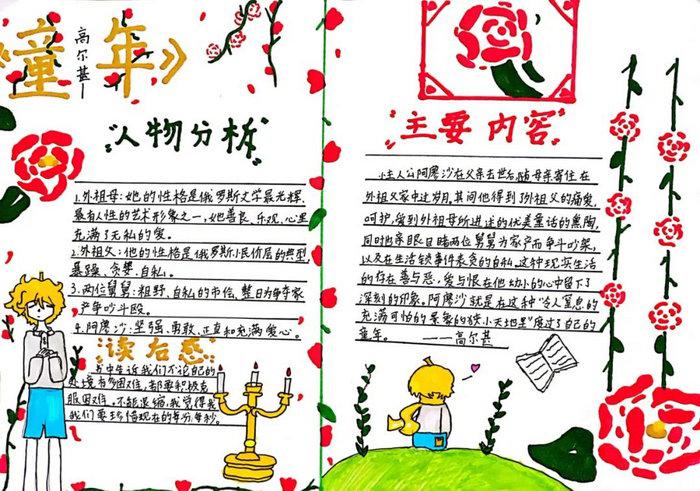 《童年》
高尔基
"人物分析"
1.外祖母:她的性格是俄罗斯文学最光辉、
最有人性的艺术形象之一,她善良、乐观、心里
充满了无私的爱。
2.外祖父:他的性格是俄罗斯小民阶层的典型,
暴躁、贪婪、自私。
3.两位舅舅:粗野、自私的市侩,整日为争夺家
产争吵斗殴。
4.阿廖沙:坚强、勇敢、正直和充满爱心。
读后感
书中告诉我们不论自己的
处境多困难,都要积极克
服困难,不能退缩,我觉得我
我们要珍惜现在的每分每秒。
"主要内容"
小主人公阿廖沙在父亲去世后,随母亲寄住在
外祖父家中过岁月,其间他得到外祖母的疼爱、
呵护,受到外祖母所讲述的优美童话的熏陶,
同时他亲眼目睹两位舅舅为家产而争斗吵架,
以及在生活锁事件表贪的自私,这种现实生活
的存在善与恶,爱与恨在他幼小的心中留下了
深刻的印象,阿廖沙就是在这种"令人窒息的
充满可怕的景象的狭小天地里"度过了自己的
童年。 ——高尔基